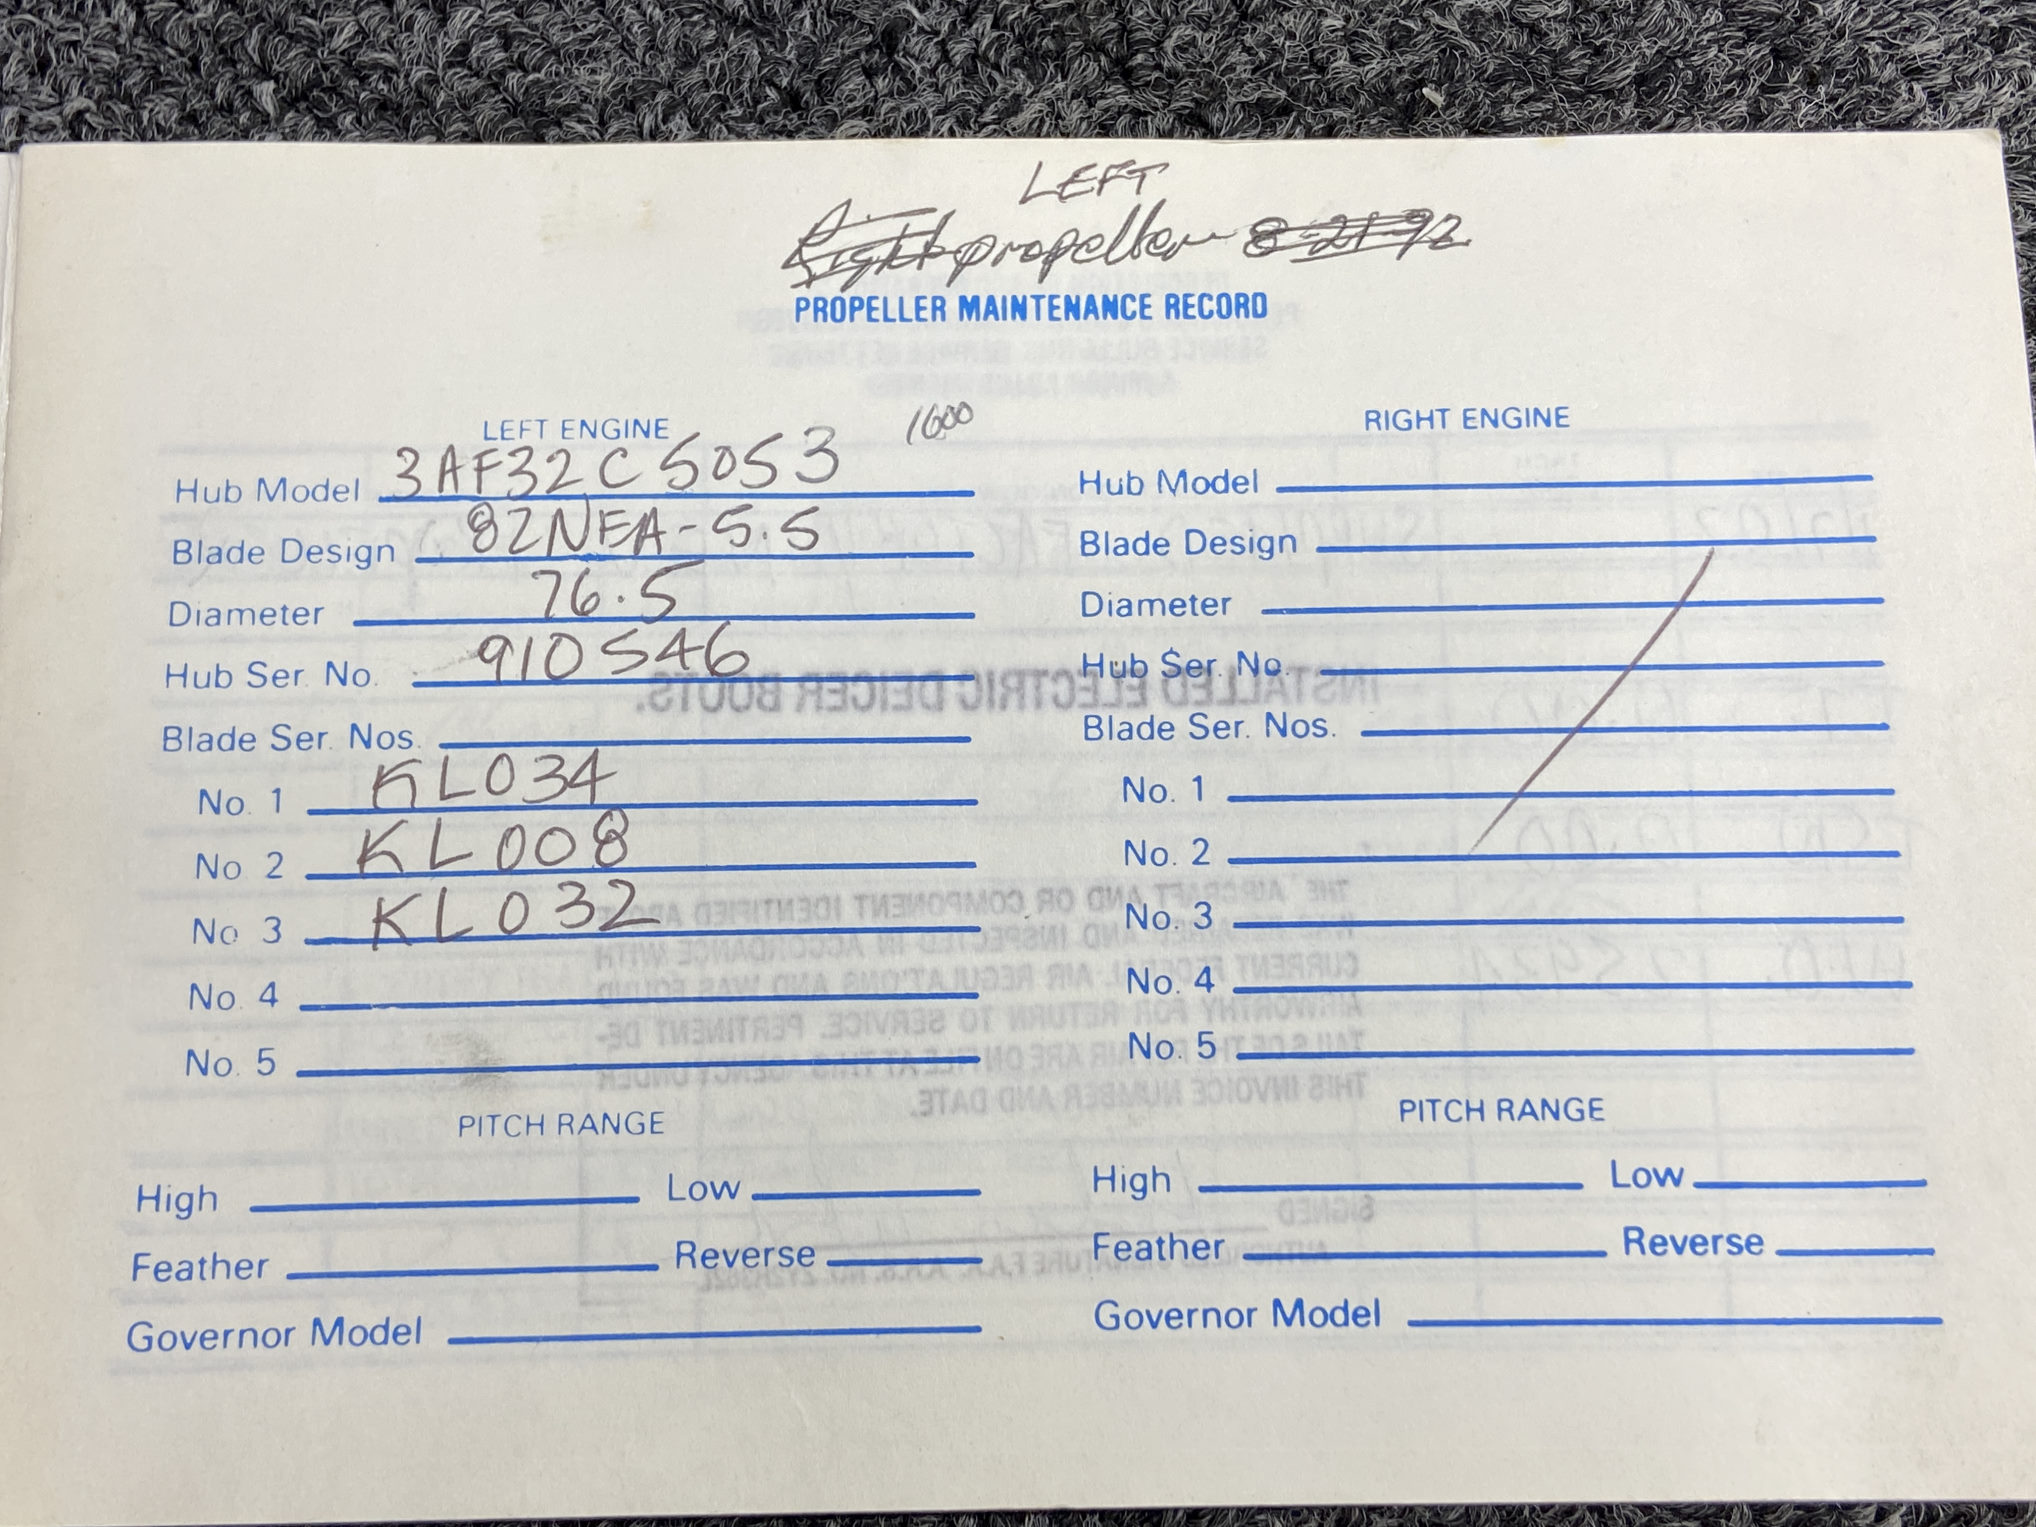 LEFT
Right propeller 8-21-92
PROPELLER MAINTENANCE RECORD
LEFT ENGINE
1600
Hub Model 3AF32C5053
Blade Design 82NEA-5.5
Diameter 76.5
Hub Ser. No. 910546
Blade Ser. Nos.
No. 1 KL034
No. 2 KL008
No. 3 KL032
No. 4
No. 5
PITCH RANGE
High Low
Feather Reverse
Governor Model
RIGHT ENGINE
Hub Model
Blade Design
Diameter
Hub Ser. No.
Blade Ser. Nos.
No. 1
No. 2
No. 3
No. 4
No. 5
PITCH RANGE
High Low
Feather Reverse
Governor Model
INSTALLED ELECTRIC DEICER BOOTS.